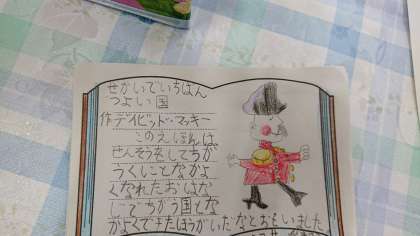 せかいでいちばん
つよい国
作デイビット・マッキー
このえほんは
せんそうをしてちが
うくにとなかよ
くなれたおはな
しでちがう国とな
かよくできたほうがいいなとおもいました。